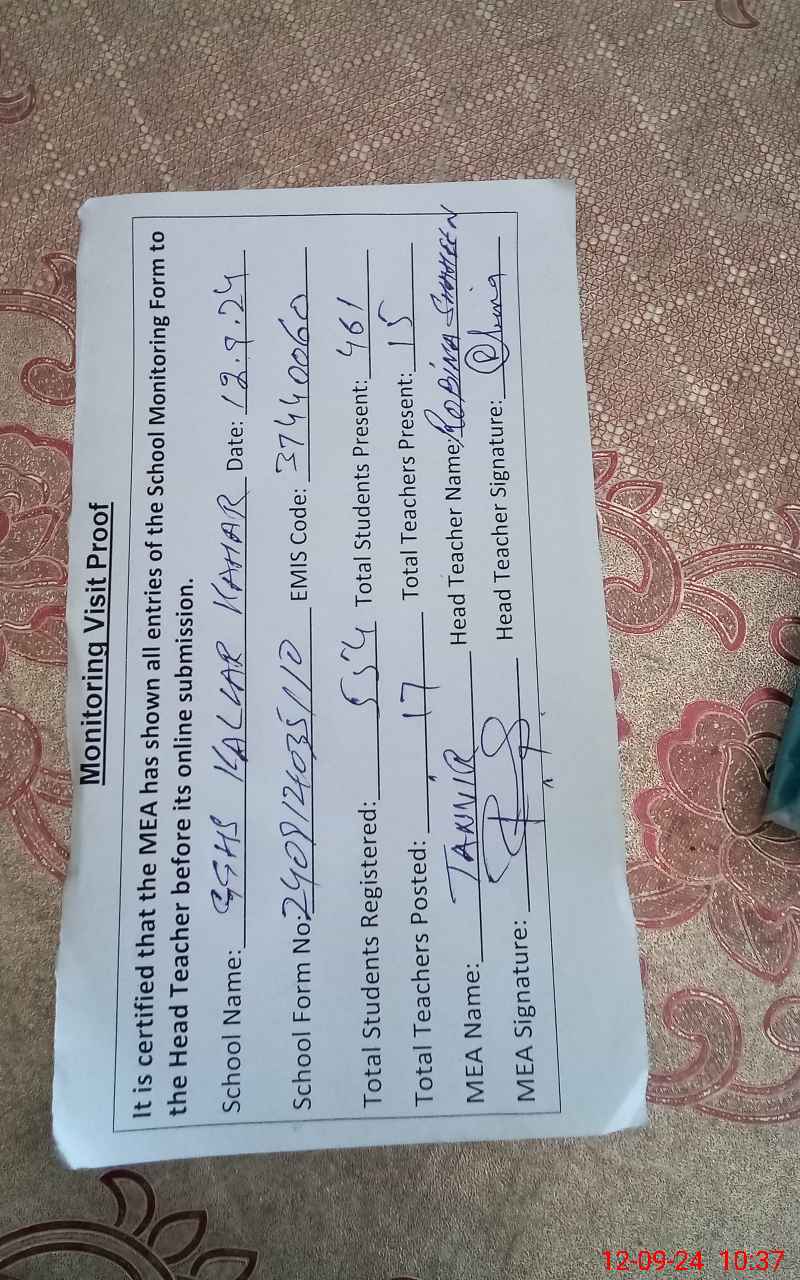 Monitoring Visit Proof
It is certified that the MEA has shown all entries of the School Monitoring Form to
the Head Teacher before its online submission.
School Name: GGHS KALLAR KAHAR Date: 12.9.24
School Form No: EMIS Code: 37440060
Total Students Registered: 554 Total Students Present: 461
Total Teachers Posted: 17 Total Teachers Present: 15
MEA Name: TANVIR Head Teacher Name: ROBINA SHAHEEN
MEA Signature: Head Teacher Signature:
12-09-24 10:37